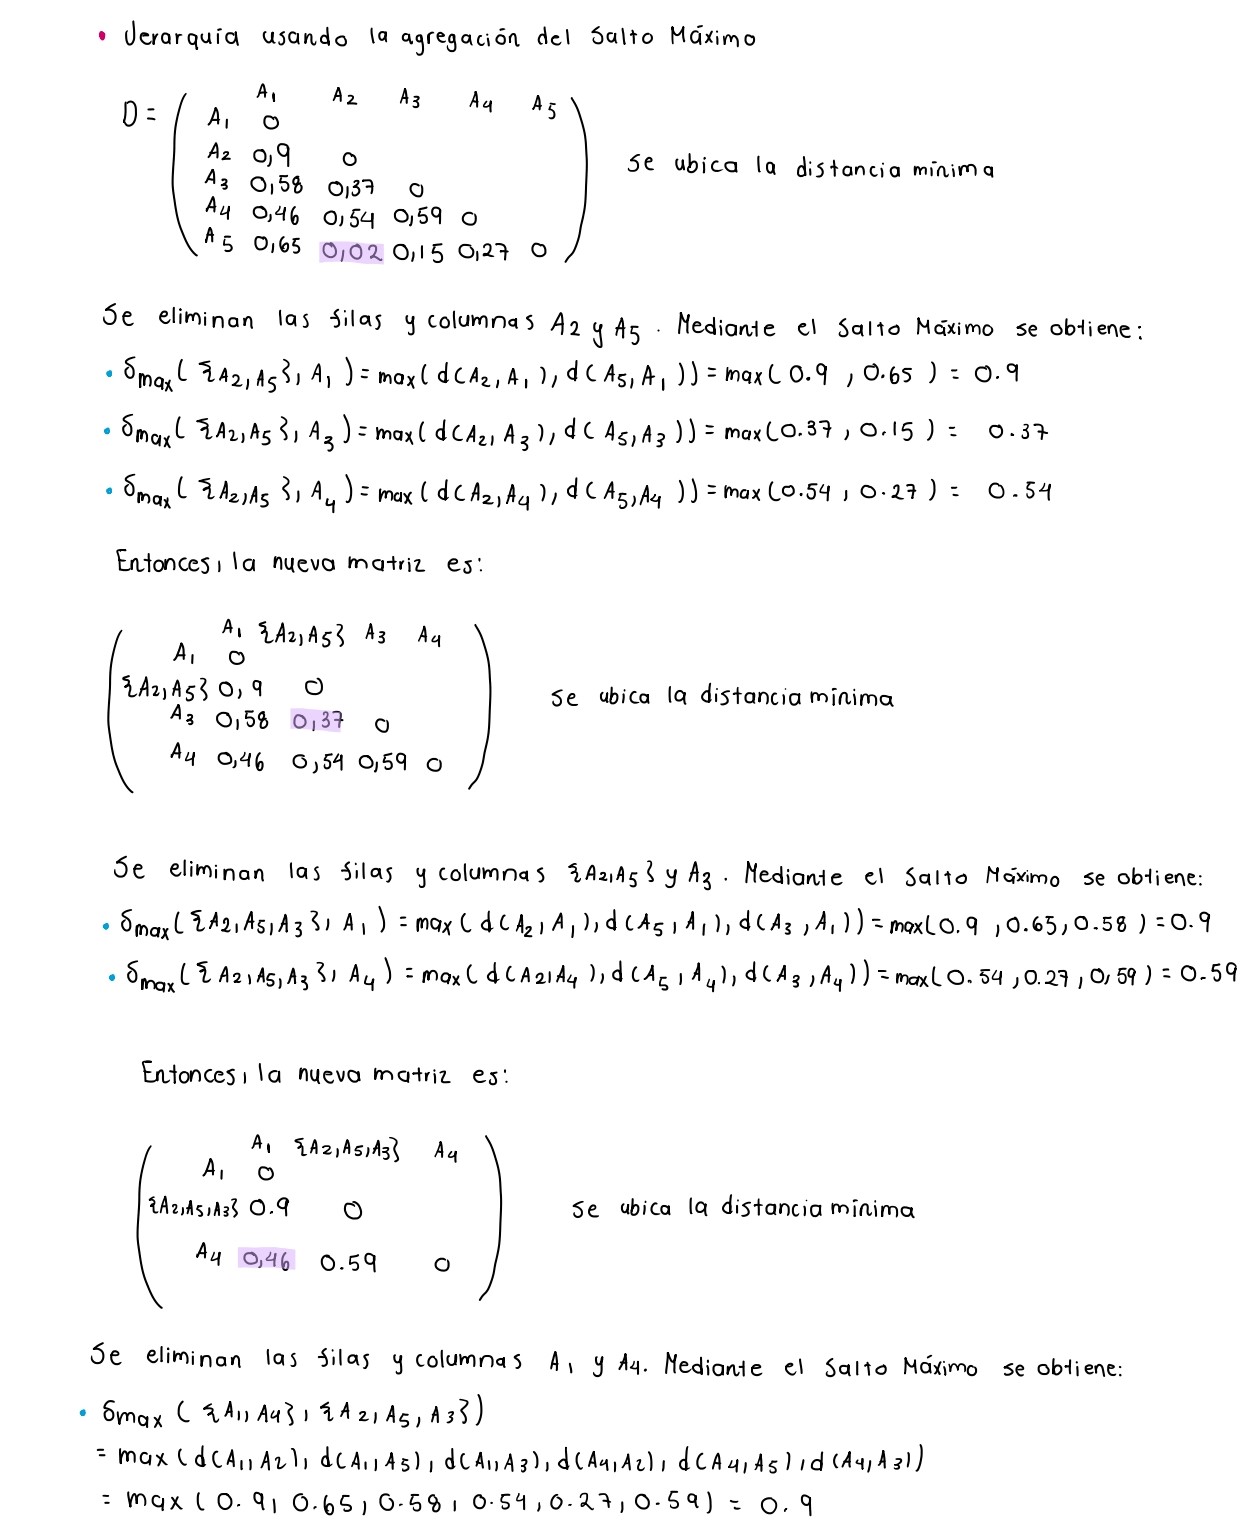 • Jerarquía usando la agregación del Salto Máximo
A1 A2 A3 A4 A5
D =
A1 0
A2 0,9 0
A3 0,58 0,37 0
A4 0,46 0,54 0,59 0
A5 0,65 0,02 0,15 0,27 0
Se ubica la distancia mínima
Se eliminan las filas y columnas A2 y A5. Mediante el Salto Máximo se obtiene:
• δmax({A2,A5}, A1) = max(d(A2,A1), d(A5,A1)) = max(0.9, 0.65) = 0.9
• δmax({A2,A5}, A3) = max(d(A2,A3), d(A5,A3)) = max(0.37, 0.15) = 0.37
• δmax({A2,A5}, A4) = max(d(A2,A4), d(A5,A4)) = max(0.54, 0.27) = 0.54
Entonces, la nueva matriz es:
A1 {A2,A5} A3 A4
A1 0
{A2,A5} 0,9 0
A3 0,58 0,37 0
A4 0,46 0,54 0,59 0
Se ubica la distancia mínima
Se eliminan las filas y columnas {A2,A5} y A3. Mediante el Salto Máximo se obtiene:
• δmax({A2,A5,A3}, A1) = max(d(A2,A1), d(A5,A1), d(A3,A1)) = max(0.9, 0.65, 0.58) = 0.9
• δmax({A2,A5,A3}, A4) = max(d(A2,A4), d(A5,A4), d(A3,A4)) = max(0.54, 0.27, 0,59) = 0.59
Entonces, la nueva matriz es:
A1 {A2,A5,A3} A4
A1 0
{A2,A5,A3} 0.9 0
A4 0,46 0.59 0
Se ubica la distancia mínima
Se eliminan las filas y columnas A1 y A4. Mediante el Salto Máximo se obtiene:
• δmax ({A1,A4}, {A2,A5,A3})
= max(d(A1,A2), d(A1,A5), d(A1,A3), d(A4,A2), d(A4,A5), d(A4,A3))
= max(0.9, 0.65, 0.58, 0.54, 0.27, 0.59) = 0.9